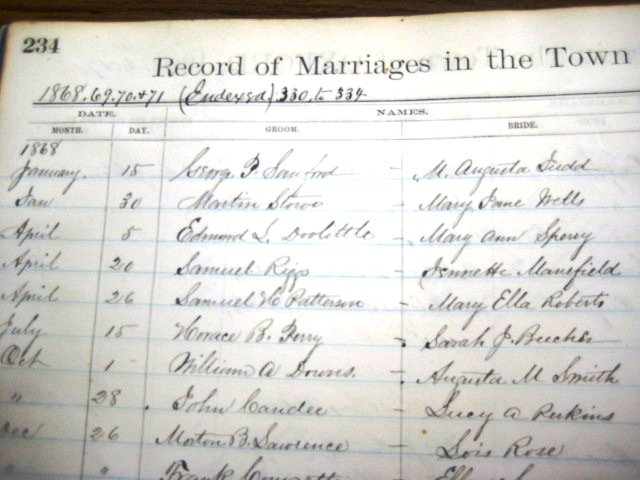 234
Record of Marriages in the Town
1868.69.70.+71 (Endexed) 330. to 334
DATE. NAMES.
MONTH. DAY. GROOM. BRIDE.
1868
January. 15 George P. Sanford - M. Augusta Judd
Jan 30 Martin Stowe - Mary Jane Wells
April 5 Edmund L. Doolittle - Mary Ann Sperry
April 20 Samuel Riggs - Jennette Mansfield
April 26 Samuel H Patterson - Mary Ella Roberts
July 15 Horace B. Perry - Sarah J. Beecher
Oct 1 William A Downs. - Augusta M Smith
" 28 John Candee - Lucy A Perkins
Dec 26 Morton B. Lawrence - Lois Rose
" " Frank